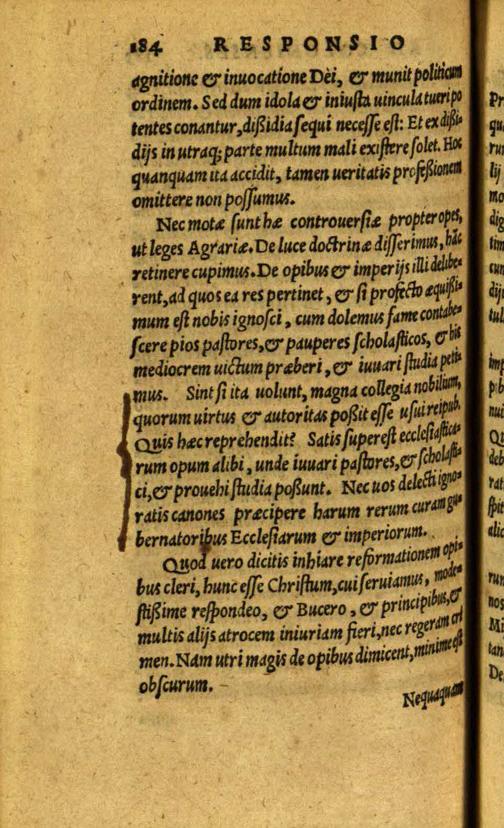 184 RESPONSIO
agnitione & inuocatione Dei, & munit politicum
ordinem. Sed dum idola & iniusta uincula tueri po
tentes conantur, dißidia sequi necesse est: Et ex dißi-
dijs in utraq; parte multum mali existere solet. Hoc
quanquam ita accidit, tamen ueritatis profeßionem
omittere non possumus.
Nec motæ sunt hæ controuersiæ propter opes,
ut leges Agrariæ. De luce doctrinæ disserimus, hãc
retinere cupimus. De opibus & imperijs illi delibe-
rent, ad quos ea res pertinet, & si profecto æquißi-
mum est nobis ignosci, cum dolemus fame contabe-
scere pios pastores, & pauperes scholasticos, & his
mediocrem uictum præberi, & iuuari studia peti-
mus. Sint si ita uolunt, magna collegia nobilium,
quorum uirtus & autoritas poßit esse usui reipub.
Quis hæc reprehendit? Satis superest ecclesiastica-
rum opum alibi, unde iuuari pastores, & scholasti-
ci, & prouehi studia possunt. Nec uos delecti igno-
ratis canones præcipere harum rerum curam gu-
bernatoribus Ecclesiarum & imperiorum.
Quod uero dicitis inhiare reformationem opi-
bus cleri, hunc esse Christum, cui seruiamus, mode-
stißime respondeo, & Bucero, & principibus, &
multis alijs atrocem iniuriam fieri, nec regeram cri
men. Nam utri magis de opibus dimicent, minime est
obscurum.
Nequaquam